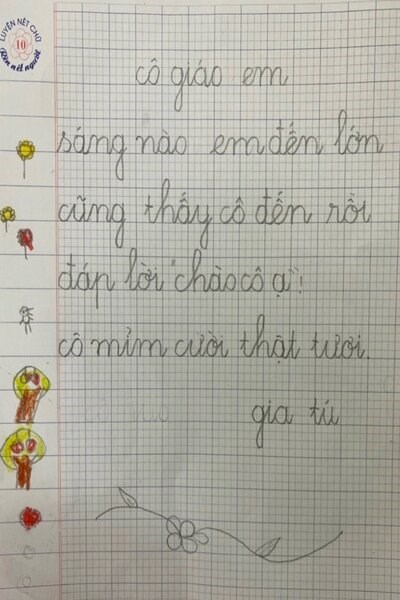 LUYỆN NÉT CHỮ
10
Rèn nết người
cô giáo em
sáng nào em đến lớn
cũng thấy cô đến rồi
đáp lời "chào cô ạ"!
cô mỉm cười thật tươi.
gia tú